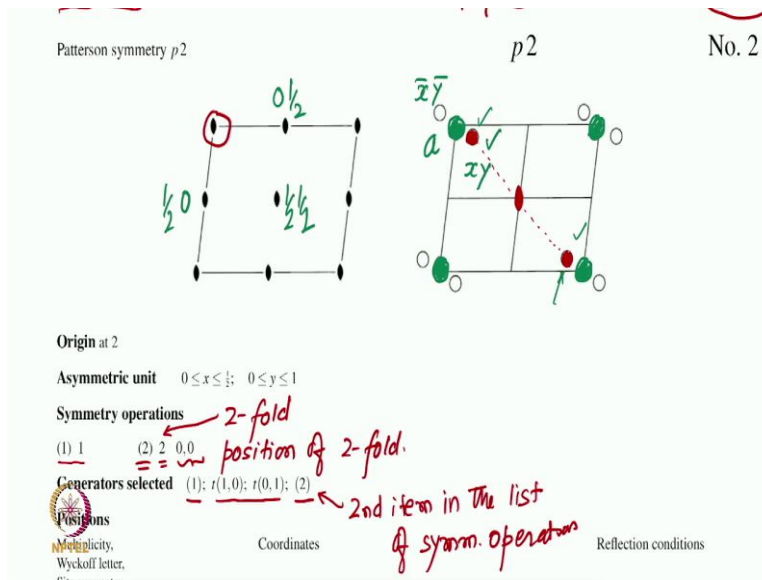 Patterson symmetry p2
p2
No. 2
0 ½
½ 0
½ ½
x̄ ȳ
a
x y
Origin at 2
Asymmetric unit 0 ≤ x ≤ ½; 0 ≤ y ≤ 1
Symmetry operations
2-fold
(1) 1 (2) 2 0,0
position of 2-fold.
Generators selected (1); t(1,0); t(0,1); (2)
2nd item in the list
of symm. operations
Positions
NPTEL
Multiplicity,
Coordinates
Reflection conditions
Wyckoff letter,